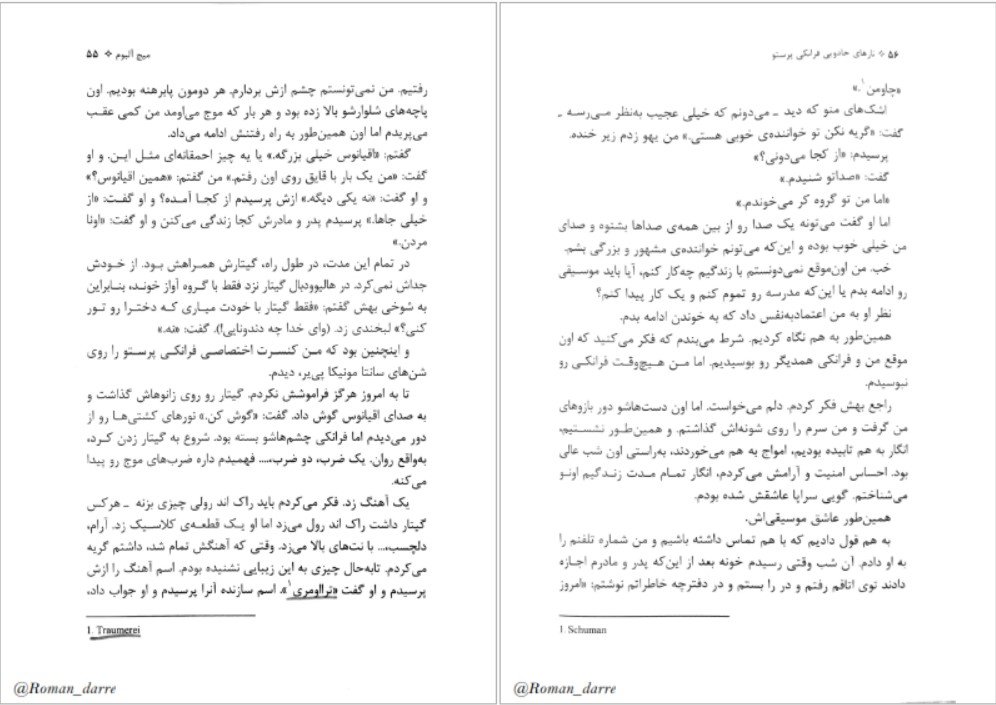 میچ آلبوم ❖ ۵۵
رفتیم. من نمی‌تونستم چشم ازش بردارم. هر دومون پابرهنه بودیم. اون
پاچه‌های شلوارشو بالا زده بود و هر بار که موج می‌اومد من کمی عقب
می‌پریدم اما اون همین‌طور به راه رفتنش ادامه می‌داد.
گفتم: «اقیانوس خیلی بزرگه.» یا یه چیز احمقانه‌ای مثل این. و او
گفت: «من یک بار با قایق روی اون رفتم.» من گفتم: «همین اقیانوس؟»
و او گفت: «نه یکی دیگه.» ازش پرسیدم از کجا آمده؟ و او گفت: «از
خیلی جاها.» پرسیدم پدر و مادرش کجا زندگی می‌کنن و او گفت: «اونا
مردن.»
در تمام این مدت، در طول راه، گیتارش همراهش بود. از خودش
جداش نمی‌کرد. در هالیوودبال گیتار نزد فقط با گروه آواز خوند، بنابراین
به شوخی بهش گفتم: «فقط گیتار با خودت میاری که دخترا رو تور
کنی؟» لبخندی زد. (وای خدا چه دندونایی!). گفت: «نه.»
و اینچنین بود که من کنسرت اختصاصی فرانکی پرستو را روی
شن‌های سانتا مونیکا پی‌یر، دیدم.
تا به امروز هرگز فراموشش نکردم. گیتار رو روی زانوهاش گذاشت و
به صدای اقیانوس گوش داد. گفت: «گوش کن.» نورهای کشتی‌ها رو از
دور می‌دیدم اما فرانکی چشم‌هاشو بسته بود. شروع به گیتار زدن کرد،
به‌واقع روان. یک ضرب، دو ضرب،... فهمیدم داره ضرب‌های موج رو پیدا
می‌کنه.
یک آهنگ زد. فکر می‌کردم باید راک اند رولی چیزی بزنه ـ هرکس
گیتار داشت راک اند رول می‌زد اما او یک قطعه‌ی کلاسیک زد. آرام،
دلچسب،... با نت‌های بالا می‌زد. وقتی که آهنگش تمام شد، داشتم گریه
می‌کردم. تابه‌حال چیزی به این زیبایی نشنیده بودم. اسم آهنگ را ازش
پرسیدم و او گفت «تراومری۱». اسم سازنده آنرا پرسیدم و او جواب داد،
1. Traumerei
@Roman_darre
۵۶ ❖ تارهای جادویی فرانکی پرستو
«چاومن۱.»
اشک‌های منو که دید ـ می‌دونم که خیلی عجیب به‌نظر می‌رسه ـ
گفت: «گریه نکن تو خواننده‌ی خوبی هستی.» من یهو زدم زیر خنده.
پرسیدم: «از کجا می‌دونی؟»
گفت: «صداتو شنیدم.»
«اما من تو گروه کر می‌خوندم.»
اما او گفت می‌تونه یک صدا رو از بین همه‌ی صداها بشنوه و صدای
من خیلی خوب بوده و این‌که می‌تونم خواننده‌ی مشهور و بزرگی بشم.
خب. من اون‌موقع نمی‌دونستم با زندگیم چه‌کار کنم، آیا باید موسیقی
رو ادامه بدم یا این‌که مدرسه رو تموم کنم و یک کار پیدا کنم؟
نظر او به من اعتمادبه‌نفس داد که به خوندن ادامه بدم.
همین‌طور به هم نگاه کردیم. شرط می‌بندم که فکر می‌کنید که اون
موقع من و فرانکی همدیگر رو بوسیدیم. اما من هیچ‌وقت فرانکی رو
نبوسیدم.
راجع بهش فکر کردم. دلم می‌خواست. اما اون دست‌هاشو دور بازوهای
من گرفت و من سرم را روی شونه‌اش گذاشتم. و همین‌طور نشستیم،
انگار به هم تابیده بودیم، امواج به هم می‌خوردند، به‌راستی اون شب عالی
بود. احساس امنیت و آرامش می‌کردم، انگار تمام مدت زندگیم اونو
می‌شناختم. گویی سراپا عاشقش شده بودم.
همین‌طور عاشق موسیقی‌اش.
به هم قول دادیم که با هم تماس داشته باشیم و من شماره تلفنم را
به او دادم. آن شب وقتی رسیدم خونه بعد از این‌که پدر و مادرم اجازه
دادند توی اتاقم رفتم و در را بستم و در دفترچه خاطراتم نوشتم: «امروز
1. Schuman
@Roman_darre